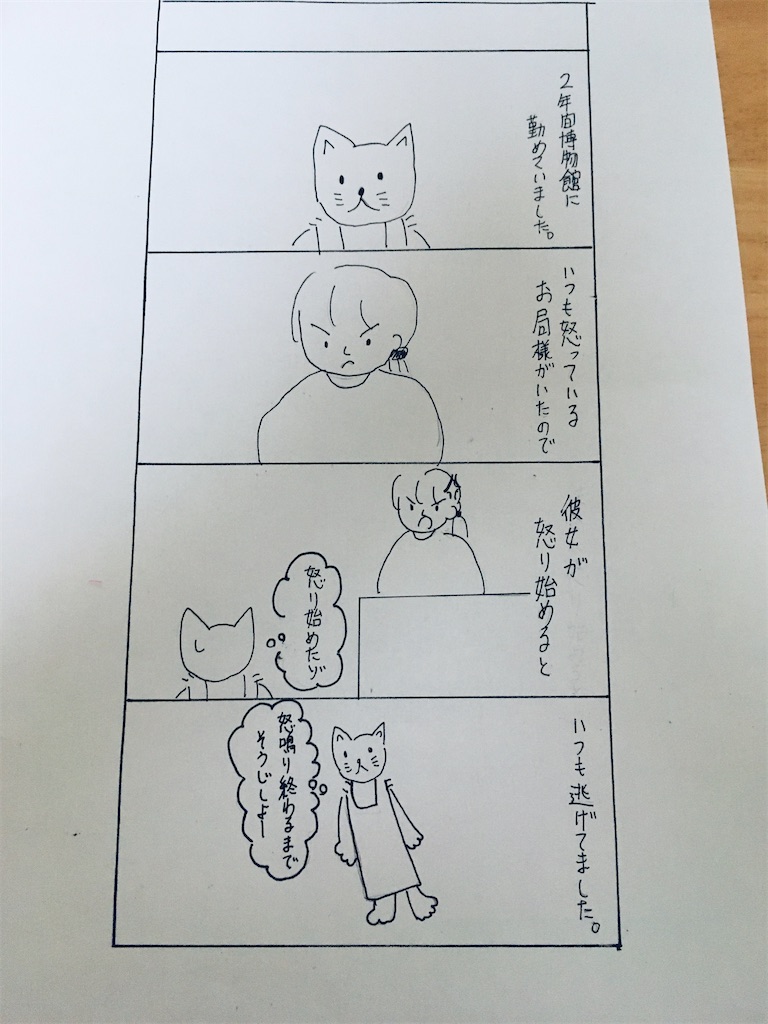 2年間博物館に
勤めていました。
いつも怒っている
お局様がいたので
彼女が
怒り始めると
怒り始めたゾ
いつも逃げてました。
怒鳴り終わるまで
そうじしよー